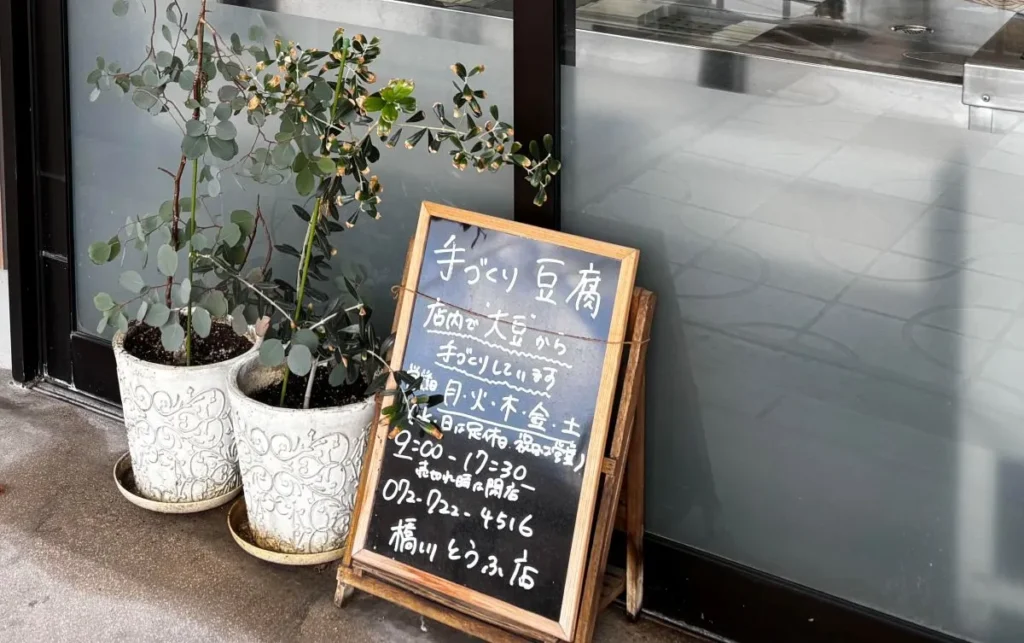 手づくり豆腐
店内で大豆から
手づくりしています
営業日 月・火・木・金・土
(水・日は定休日、祝日は営業)
9:00-17:30
売切れ時は閉店
072-722-4516
橋川とうふ店